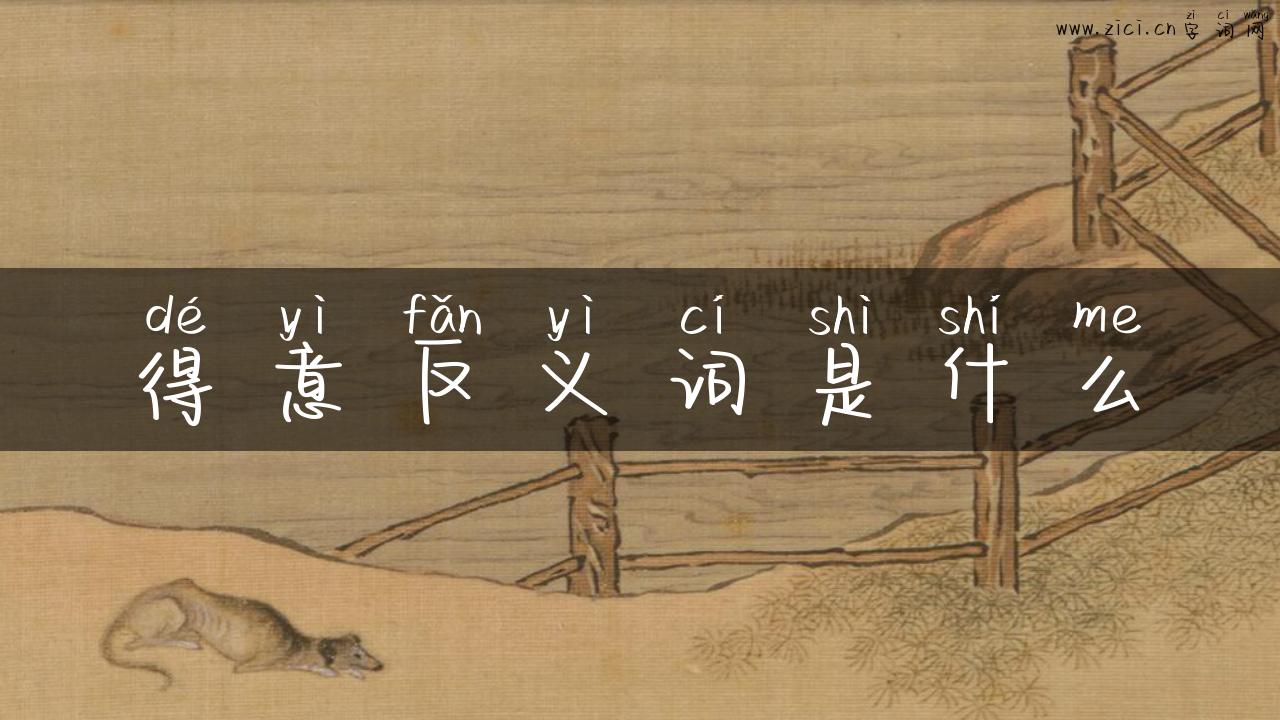 zì cí wǎng
www.zici.cn 字词网
dé yì fǎn yì cí shì shí me
得意反义词是什么